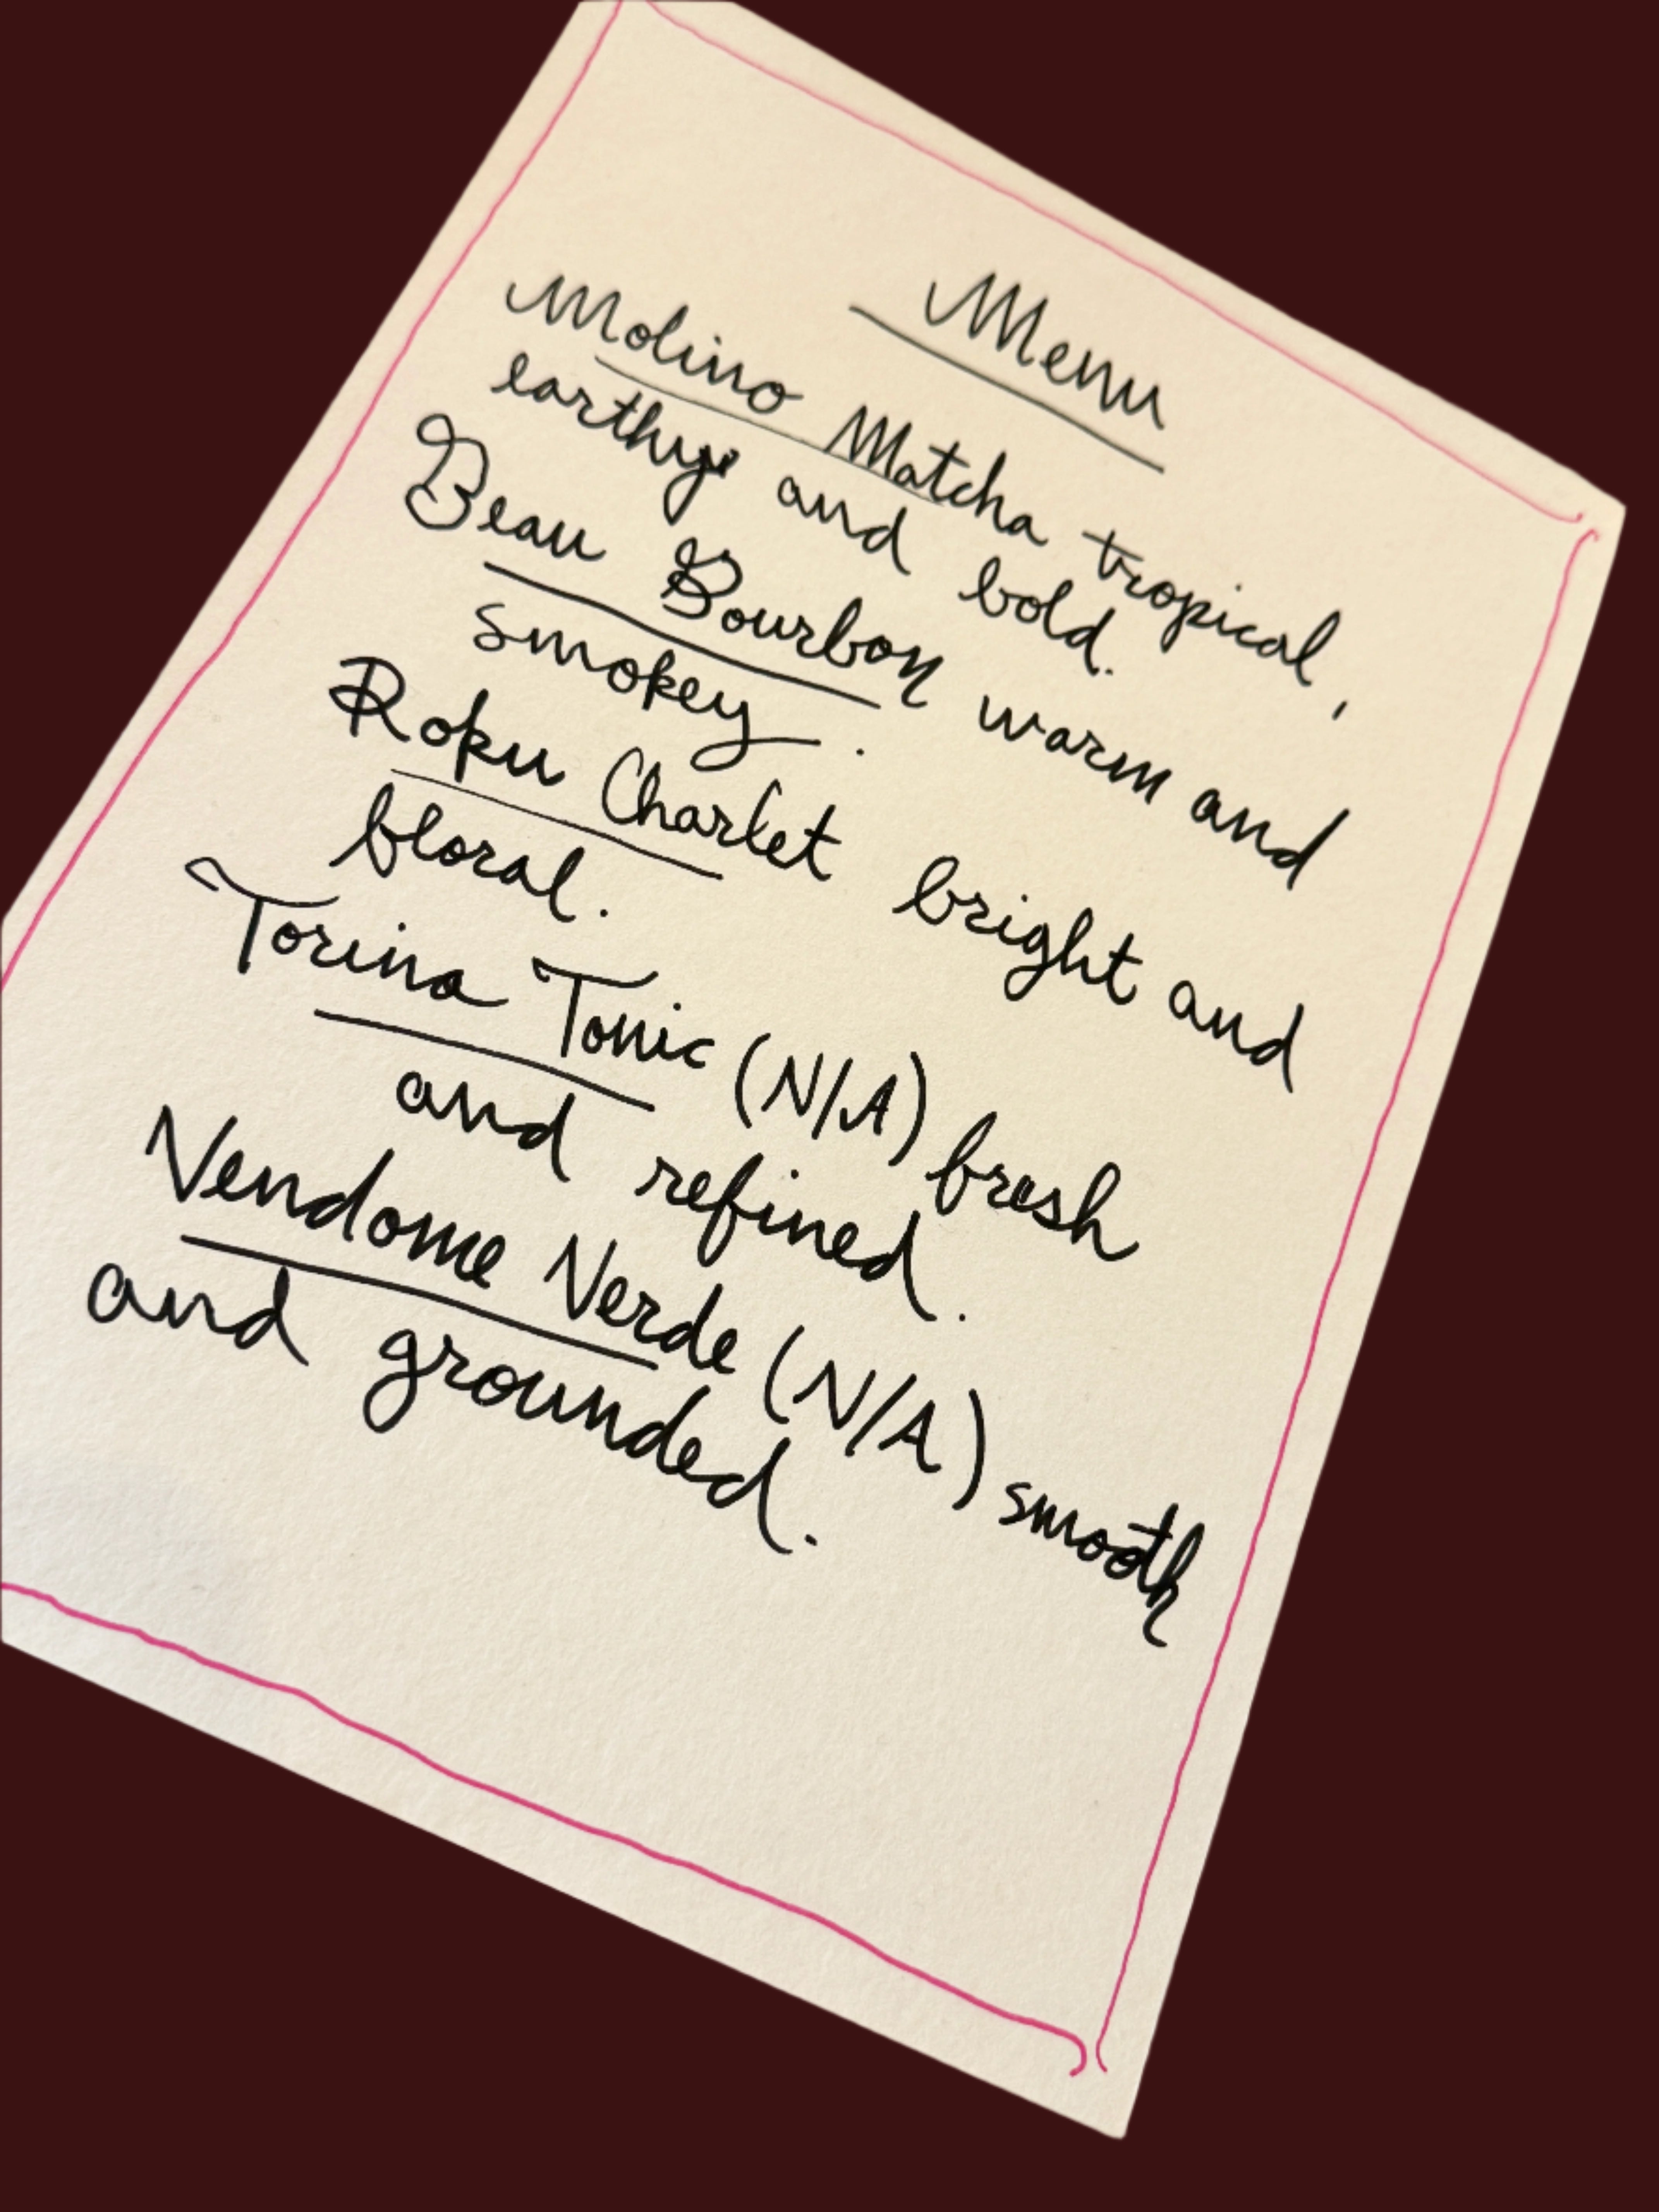 Menu
Molino Matcha tropical,
earthy and bold.
Beau Bourbon warm and
smokey.
Roku Charlet bright and
floral.
Torina Tonic (N/A) fresh
and refined.
Vendome Verde (N/A) smooth
and grounded.